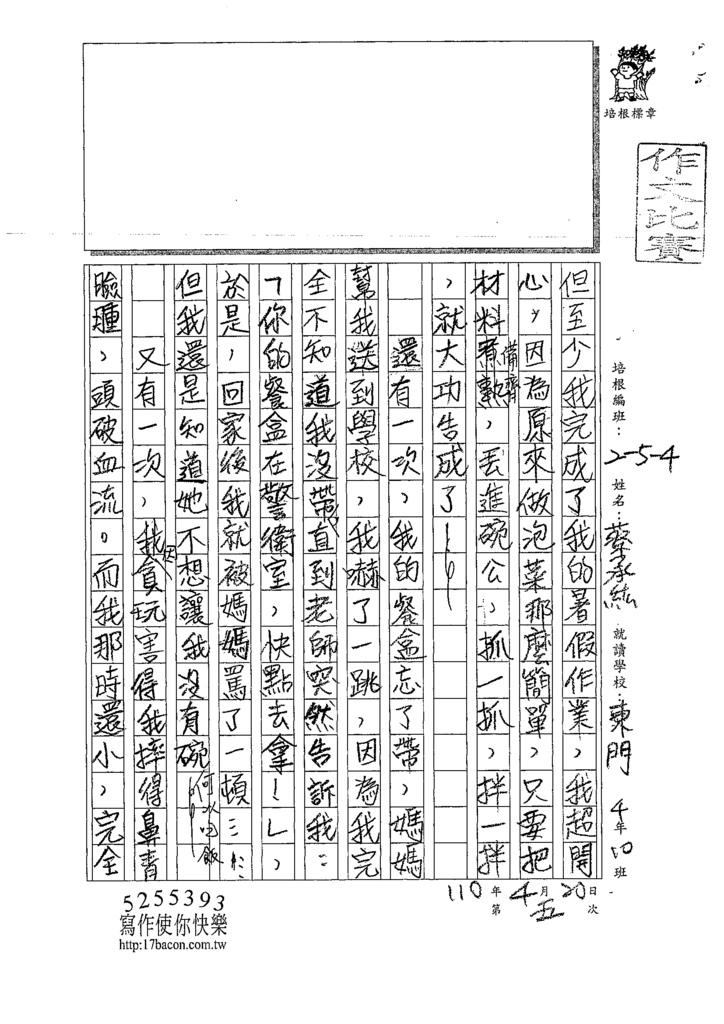 培根標章
作文比賽
培根編班：2-5-4 姓名：蔡承紘 就讀學校：東門 4年10班
110年4月20日 第五次
但至少我完成了我的暑假作業，我超開
心，因為原來做泡菜那麼簡單，只要把
材料備齊，丟進碗公，抓一抓，拌一拌
，就大功告成了！
還有一次，我的餐盒忘了帶，媽媽
幫我送到學校，我嚇了一跳，因為我完
全不知道我沒帶，直到老師突然告訴我：
「你的餐盒在警衛室，快點去拿！」，
於是，回家後我就被媽媽罵了一頓……
但我還是知道她不想讓我沒有碗可以吃飯
又有一次，我因貪玩害得我摔得鼻青
臉腫，頭破血流。而我那時還小，完全
5255393
寫作使你快樂
http:17bacon.com.tw